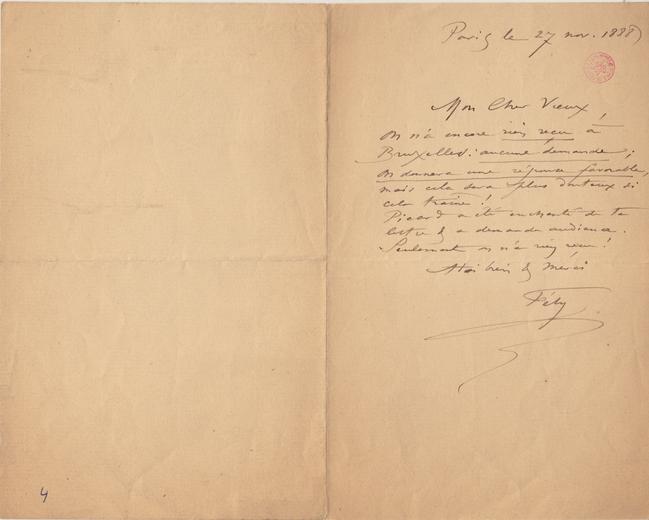 Paris le 27 nov. 1888
Mon Cher Vieux,
On n'a encore rien reçu à
Bruxelles : aucune demande ;
On donnera une réponse favorable,
mais cela sera plus douteux si
cela traîne !
Picard a été enchanté de ta
lettre & a demandé audience.
Seulement on n'a rien reçu !
& merci
Fély
4